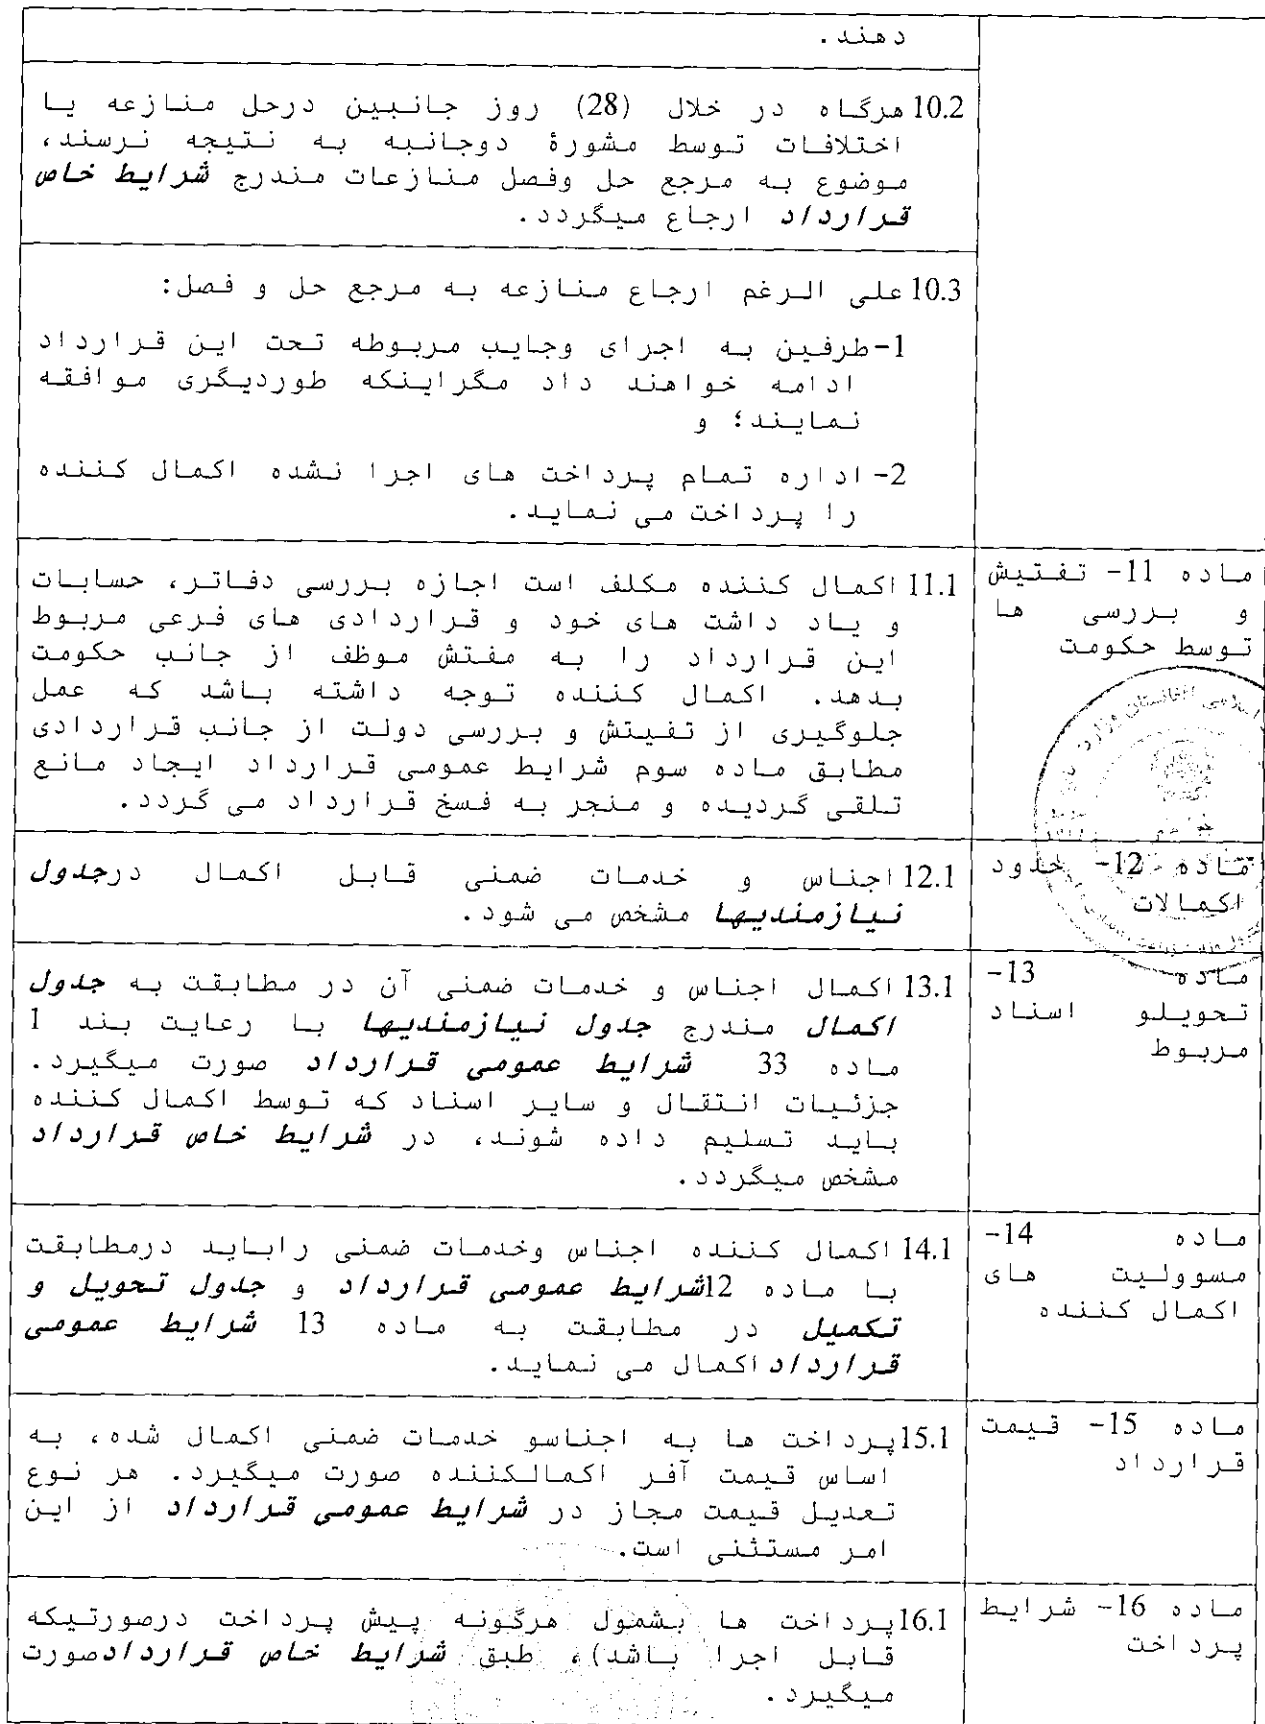 دهند.
10.2 هرگاه در خلال (28) روز جانبین درحل منازعه یا
اختلافات توسط مشورۀ دوجانبه به نتیجه نرسند،
موضوع به مرجع حل وفصل منازعات مندرج شرایط خاص
قرارداد ارجاع میگردد.
10.3 علی الرغم ارجاع منازعه به مرجع حل و فصل:
1- طرفین به اجرای وجایب مربوطه تحت این قرارداد
ادامه خواهند داد مگراینکه طوردیگری موافقه
نمایند؛ و
2- اداره تمام پرداخت های اجرا نشده اکمال کننده
را پرداخت می نماید.
ماده 11- تفتیش
و بررسی ها
توسط حکومت
11.1 اکمال کننده مکلف است اجازه بررسی دفاتر، حسابات
و یاد داشت های خود و قراردادی های فرعی مربوط
این قرارداد را به مفتش موظف از جانب حکومت
بدهد. اکمال کننده توجه داشته باشد که عمل
جلوگیری از تفیتش و بررسی دولت از جانب قراردادی
مطابق ماده سوم شرایط عمومی قرارداد ایجاد مانع
تلقی گردیده و منجر به فسخ قرارداد می گردد.
اسلامی افغانستان وزارت
ماده 12- حدود
اکمالات
12.1 اجناس و خدمات ضمنی قابل اکمال درجدول
نیازمندیها مشخص می شود.
ماده 13-
تحویلو اسناد
مربوط
13.1 اکمال اجناس و خدمات ضمنی آن در مطابقت به جدول
اکمال مندرج جدول نیازمندیها با رعایت بند 1
ماده 33 شرایط عمومی قرارداد صورت میگیرد.
جزئیات انتقال و سایر اسناد که توسط اکمال کننده
باید تسلیم داده شوند، در شرایط خاص قرارداد
مشخص میگردد.
ماده 14-
مسوولیت های
اکمال کننده
14.1 اکمال کننده اجناس وخدمات ضمنی راباید درمطابقت
با ماده 12شرایط عمومی قرارداد و جدول تحویل و
تکمیل در مطابقت به ماده 13 شرایط عمومی
قرارداد اکمال می نماید.
ماده 15- قیمت
قرارداد
15.1 پرداخت ها به اجناسو خدمات ضمنی اکمال شده، به
اساس قیمت آفر اکمالکننده صورت میگیرد. هر نوع
تعدیل قیمت مجاز در شرایط عمومی قرارداد از این
امر مستثنی است.
ماده 16- شرایط
پرداخت
16.1 پرداخت ها بشمول هرگونه پیش پرداخت درصورتیکه
قابل اجرا باشد)، طبق شرایط خاص قراردادصورت
میگیرد.